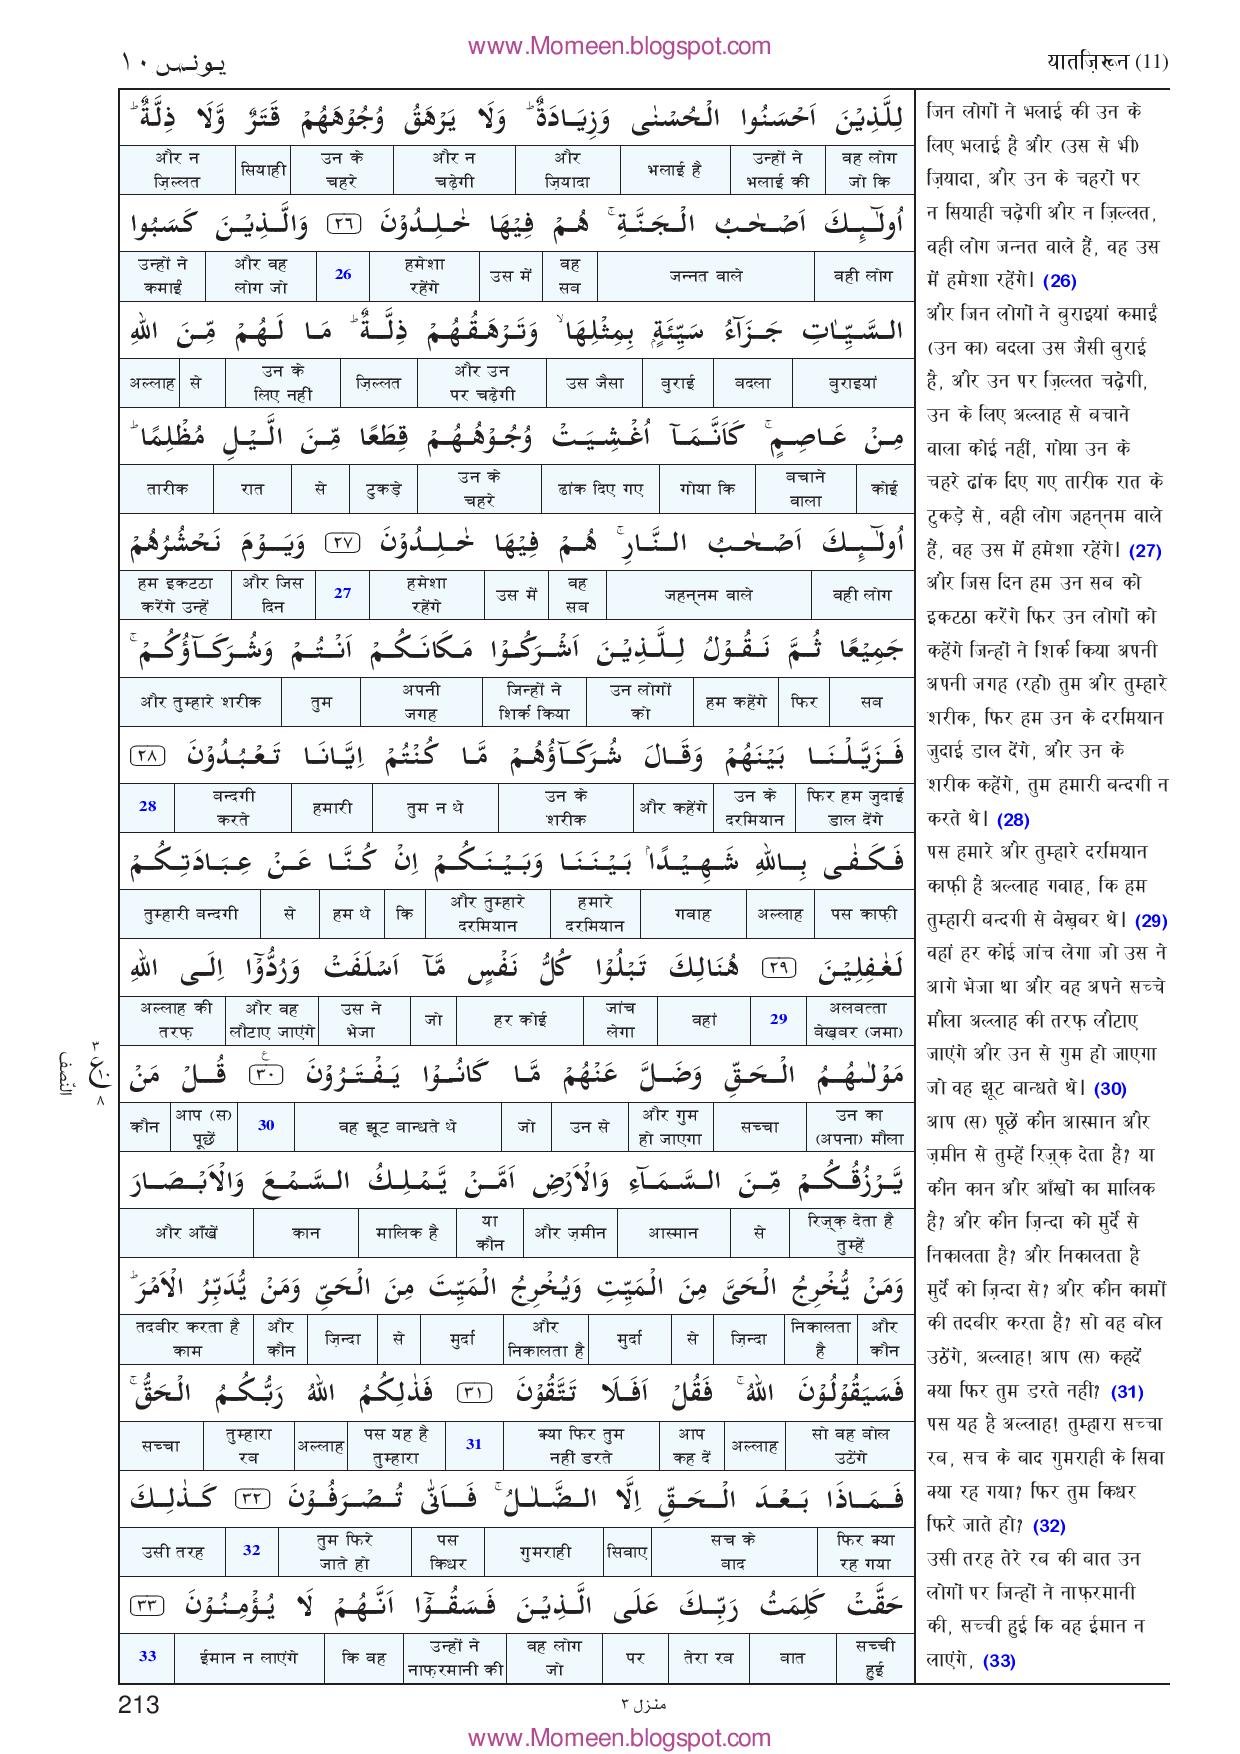 www.Momeen.blogspot.com
يونس ١٠
यातज़िरून (11)
لِلَّذِيْنَ اَحْسَنُوا الْحُسْنٰى وَزِيَادَةٌ ؕ وَلَا يَرْهَقُ وُجُوْهَهُمْ قَتَرٌ وَّلَا ذِلَّةٌ ؕ
वह लोग जो कि | उन्हों ने भलाई की | भलाई है | और ज़ियादा | और न चढ़ेगी | उन के चहरे | सियाही | और न ज़िल्लत
اُولٰٓئِكَ اَصْحٰبُ الْجَنَّةِ ۚ هُمْ فِيْهَا خٰلِدُوْنَ ٢٦ وَالَّذِيْنَ كَسَبُوا
वही लोग | जन्नत वाले | वह सब | उस में | हमेशा रहेंगे | 26 | और वह लोग जो | उन्हों ने कमाईं
السَّيِّاٰتِ جَزَآءُ سَيِّئَةٍۭ بِمِثْلِهَا ۙ وَتَرْهَقُهُمْ ذِلَّةٌ ؕ مَا لَهُمْ مِّنَ اللّٰهِ
बुराइयां | बदला | बुराई | उस जैसा | और उन पर चढ़ेगी | ज़िल्लत | उन के लिए नहीं | से | अल्लाह
مِنْ عَاصِمٍ ۚ كَاَنَّمَآ اُغْشِيَتْ وُجُوْهُهُمْ قِطَعًا مِّنَ الَّيْلِ مُظْلِمًا ؕ
कोई | बचाने वाला | गोया कि | ढांक दिए गए | उन के चहरे | टुकड़े | से | रात | तारीक
اُولٰٓئِكَ اَصْحٰبُ النَّارِ ۚ هُمْ فِيْهَا خٰلِدُوْنَ ٢٧ وَيَوْمَ نَحْشُرُهُمْ
वही लोग | जहन्नम वाले | वह सब | उस में | हमेशा रहेंगे | 27 | और जिस दिन | हम इकटठा करेंगे उन्हें
جَمِيْعًا ثُمَّ نَقُوْلُ لِلَّذِيْنَ اَشْرَكُوْا مَكَانَكُمْ اَنْتُمْ وَشُرَكَآؤُكُمْ ۚ
सब | फिर | हम कहेंगे | उन लोगों को | जिन्हों ने शिर्क किया | अपनी जगह | तुम | और तुम्हारे शरीक
فَزَيَّلْنَا بَيْنَهُمْ وَقَالَ شُرَكَآؤُهُمْ مَّا كُنْتُمْ اِيَّانَا تَعْبُدُوْنَ ٢٨
फिर हम जुदाई डाल देंगे | उन के दरमियान | और कहेंगे | उन के शरीक | तुम न थे | हमारी | बन्दगी करते | 28
فَكَفٰى بِاللّٰهِ شَهِيْدًاۢ بَيْنَنَا وَبَيْنَكُمْ اِنْ كُنَّا عَنْ عِبَادَتِكُمْ
पस काफ़ी | अल्लाह | गवाह | हमारे दरमियान | और तुम्हारे दरमियान | कि | हम थे | से | तुम्हारी बन्दगी
لَغٰفِلِيْنَ ٢٩ هُنَالِكَ تَبْلُوْا كُلُّ نَفْسٍ مَّآ اَسْلَفَتْ وَرُدُّوْٓا اِلَى اللّٰهِ
अलबत्ता बेख़बर (जमा) | 29 | वहां | जांच लेगा | हर कोई | जो | उस ने भेजा | और वह लौटाए जाएंगे | अल्लाह की तरफ़
مَوْلٰىهُمُ الْحَقِّ وَضَلَّ عَنْهُمْ مَّا كَانُوْا يَفْتَرُوْنَ ٣٠ ع قُلْ مَنْ
उन का (अपना) मौला | सच्चा | और गुम हो जाएगा | उन से | जो | वह झूट बान्धते थे | 30 | आप (स) पूछें | कौन
يَّرْزُقُكُمْ مِّنَ السَّمَآءِ وَالْاَرْضِ اَمَّنْ يَّمْلِكُ السَّمْعَ وَالْاَبْصَارَ
रिज़्क़ देता है तुम्हें | से | आस्मान | और ज़मीन | या कौन | मालिक है | कान | और आँखें
وَمَنْ يُّخْرِجُ الْحَيَّ مِنَ الْمَيِّتِ وَيُخْرِجُ الْمَيِّتَ مِنَ الْحَيِّ وَمَنْ يُّدَبِّرُ الْاَمْرَ ؕ
और कौन | निकालता है | ज़िन्दा | से | मुर्दा | और निकालता है | मुर्दा | से | ज़िन्दा | और कौन | तदबीर करता है काम
فَسَيَقُوْلُوْنَ اللّٰهُ ۚ فَقُلْ اَفَلَا تَتَّقُوْنَ ٣١ فَذٰلِكُمُ اللّٰهُ رَبُّكُمُ الْحَقُّ ۚ
सो वह बोल उठेंगे | अल्लाह | आप कह दें | क्या फिर तुम नहीं डरते | 31 | पस यह है तुम्हारा | अल्लाह | तुम्हारा रब | सच्चा
فَمَاذَا بَعْدَ الْحَقِّ اِلَّا الضَّلٰلُ ۚ فَاَنّٰى تُصْرَفُوْنَ ٣٢ كَذٰلِكَ
फिर क्या रह गया | सच के बाद | सिवाए | गुमराही | पस किधर | तुम फिरे जाते हो | 32 | उसी तरह
حَقَّتْ كَلِمَتُ رَبِّكَ عَلَى الَّذِيْنَ فَسَقُوْٓا اَنَّهُمْ لَا يُؤْمِنُوْنَ ٣٣
सच्ची हुई | बात | तेरा रब | पर | वह लोग जो | उन्हों ने नाफ़रमानी की | कि वह | ईमान न लाएंगे | 33
जिन लोगों ने भलाई की उन के
लिए भलाई है और (उस से भी)
ज़ियादा, और उन के चहरों पर
न सियाही चढ़ेगी और न ज़िल्लत,
वही लोग जन्नत वाले हैं, वह उस
में हमेशा रहेंगे। (26)
और जिन लोगों ने बुराइयां कमाईं
(उन का) बदला उस जैसी बुराई
है, और उन पर ज़िल्लत चढ़ेगी,
उन के लिए अल्लाह से बचाने
वाला कोई नहीं, गोया उन के
चहरे ढांक दिए गए तारीक रात के
टुकड़े से, वही लोग जहन्नम वाले
हैं, वह उस में हमेशा रहेंगे। (27)
और जिस दिन हम उन सब को
इकटठा करेंगे फिर उन लोगों को
कहेंगे जिन्हों ने शिर्क किया अपनी
अपनी जगह (रहो) तुम और तुम्हारे
शरीक, फिर हम उन के दरमियान
जुदाई डाल देंगे, और उन के
शरीक कहेंगे, तुम हमारी बन्दगी न
करते थे। (28)
पस हमारे और तुम्हारे दरमियान
काफ़ी है अल्लाह गवाह, कि हम
तुम्हारी बन्दगी से बेख़बर थे। (29)
वहां हर कोई जांच लेगा जो उस ने
आगे भेजा था और वह अपने सच्चे
मौला अल्लाह की तरफ़ लौटाए
जाएंगे और उन से गुम हो जाएगा
जो वह झूट बान्धते थे। (30)
आप (स) पूछें कौन आस्मान और
ज़मीन से तुम्हें रिज़्क़ देता है? या
कौन कान और आँखों का मालिक
है? और कौन ज़िन्दा को मुर्दे से
निकालता है? और निकालता है
मुर्दे को ज़िन्दा से? और कौन कामों
की तदबीर करता है? सो वह बोल
उठेंगे, अल्लाह! आप (स) कहदें
क्या फिर तुम डरते नहीं? (31)
पस यह है अल्लाह! तुम्हारा सच्चा
रब, सच के बाद गुमराही के सिवा
क्या रह गया? फिर तुम किधर
फिरे जाते हो? (32)
उसी तरह तेरे रब की बात उन
लोगों पर जिन्हों ने नाफ़रमानी
की, सच्ची हुई कि वह ईमान न
लाएंगे, (33)
٣
ع ١٠
٨
النّصف
213
منزل ٣
www.Momeen.blogspot.com